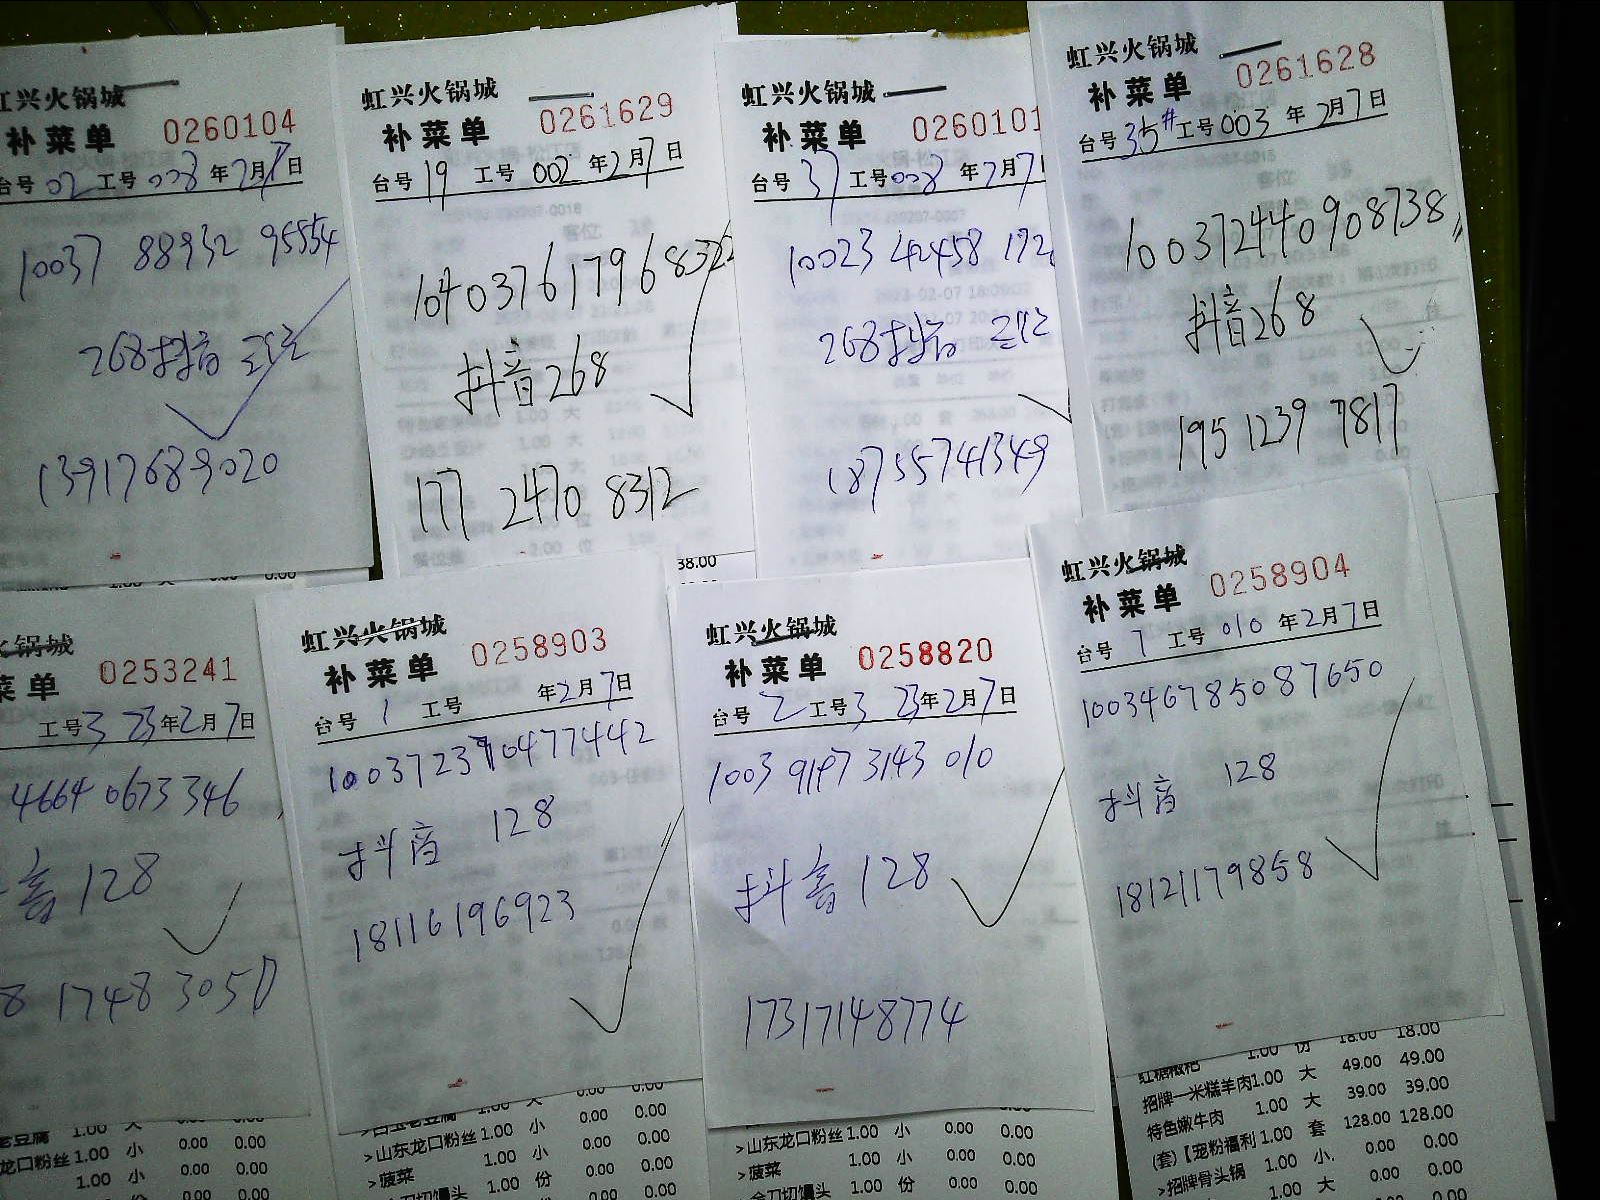 虹兴火锅城
补菜单 0260104
台号 02 工号 008 年2月7日
10037 88932 95554
268抖音
13917689020
虹兴火锅城
补菜单 0261629
台号 19 工号 002 年2月7日
抖音268
177 2470 8312
虹兴火锅城
补菜单 0260101
台号 37 工号 008 年2月7
10023 42458 172
268抖音
18755741349
虹兴火锅城
补菜单 0261628
台号 35# 工号 003 年2月7日
100372440908738
抖音268
195 1239 7817
火锅城
菜单 0253241
工号 3 23年2月7日
4664 0673346
音 128
8 1748 3051
虹兴火锅城
补菜单 0258903
台号 1 工号 年2月7日
抖音 128
18116196923
虹兴火锅城
补菜单 0258820
台号 2 工号 3 23年2月7日
1003 9197 3143 010
抖音 128
17317148774
虹兴火锅城
补菜单 0258904
台号 7 工号 010 年2月7日
100346785087650
抖音 128
18121179858
38.00
1.00 大 0.00
老豆腐 1.00 大 0.00 0.00
龙口粉丝 1.00 小 0.00 0.00
1.00 小 0.00 0.00
1.00 大 0.00 0.00
>山东龙口粉丝 1.00 小 0.00 0.00
>菠菜 1.00 小 0.00 0.00
金刀切馒头 1.00 份 0.00 0.00
>山东龙口粉丝 1.00 小 0.00 0.00
>菠菜 1.00 小 0.00 0.00
金刀切馒头 1.00 份 0.00 0.00
红糖糍粑 1.00 份 18.00 18.00
招牌一米糕羊肉 1.00 大 49.00 49.00
特色嫩牛肉 1.00 大 39.00 39.00
(套)【宠粉福利 1.00 套 128.00 128.00
>招牌骨头锅 1.00 小 0.00 0.00
1.00 大 0.00 0.00